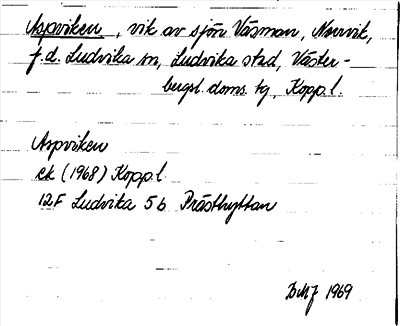 Aspviken, vik av sjön Väsman, Norrvik,
f.d. Ludvika sn, Ludvika stad, Väster-
bergsl. doms. tg, Kopp. l.
Aspviken
ek (1968) Kopp. l.
12F Ludvika 5b Prästhyttan
1969